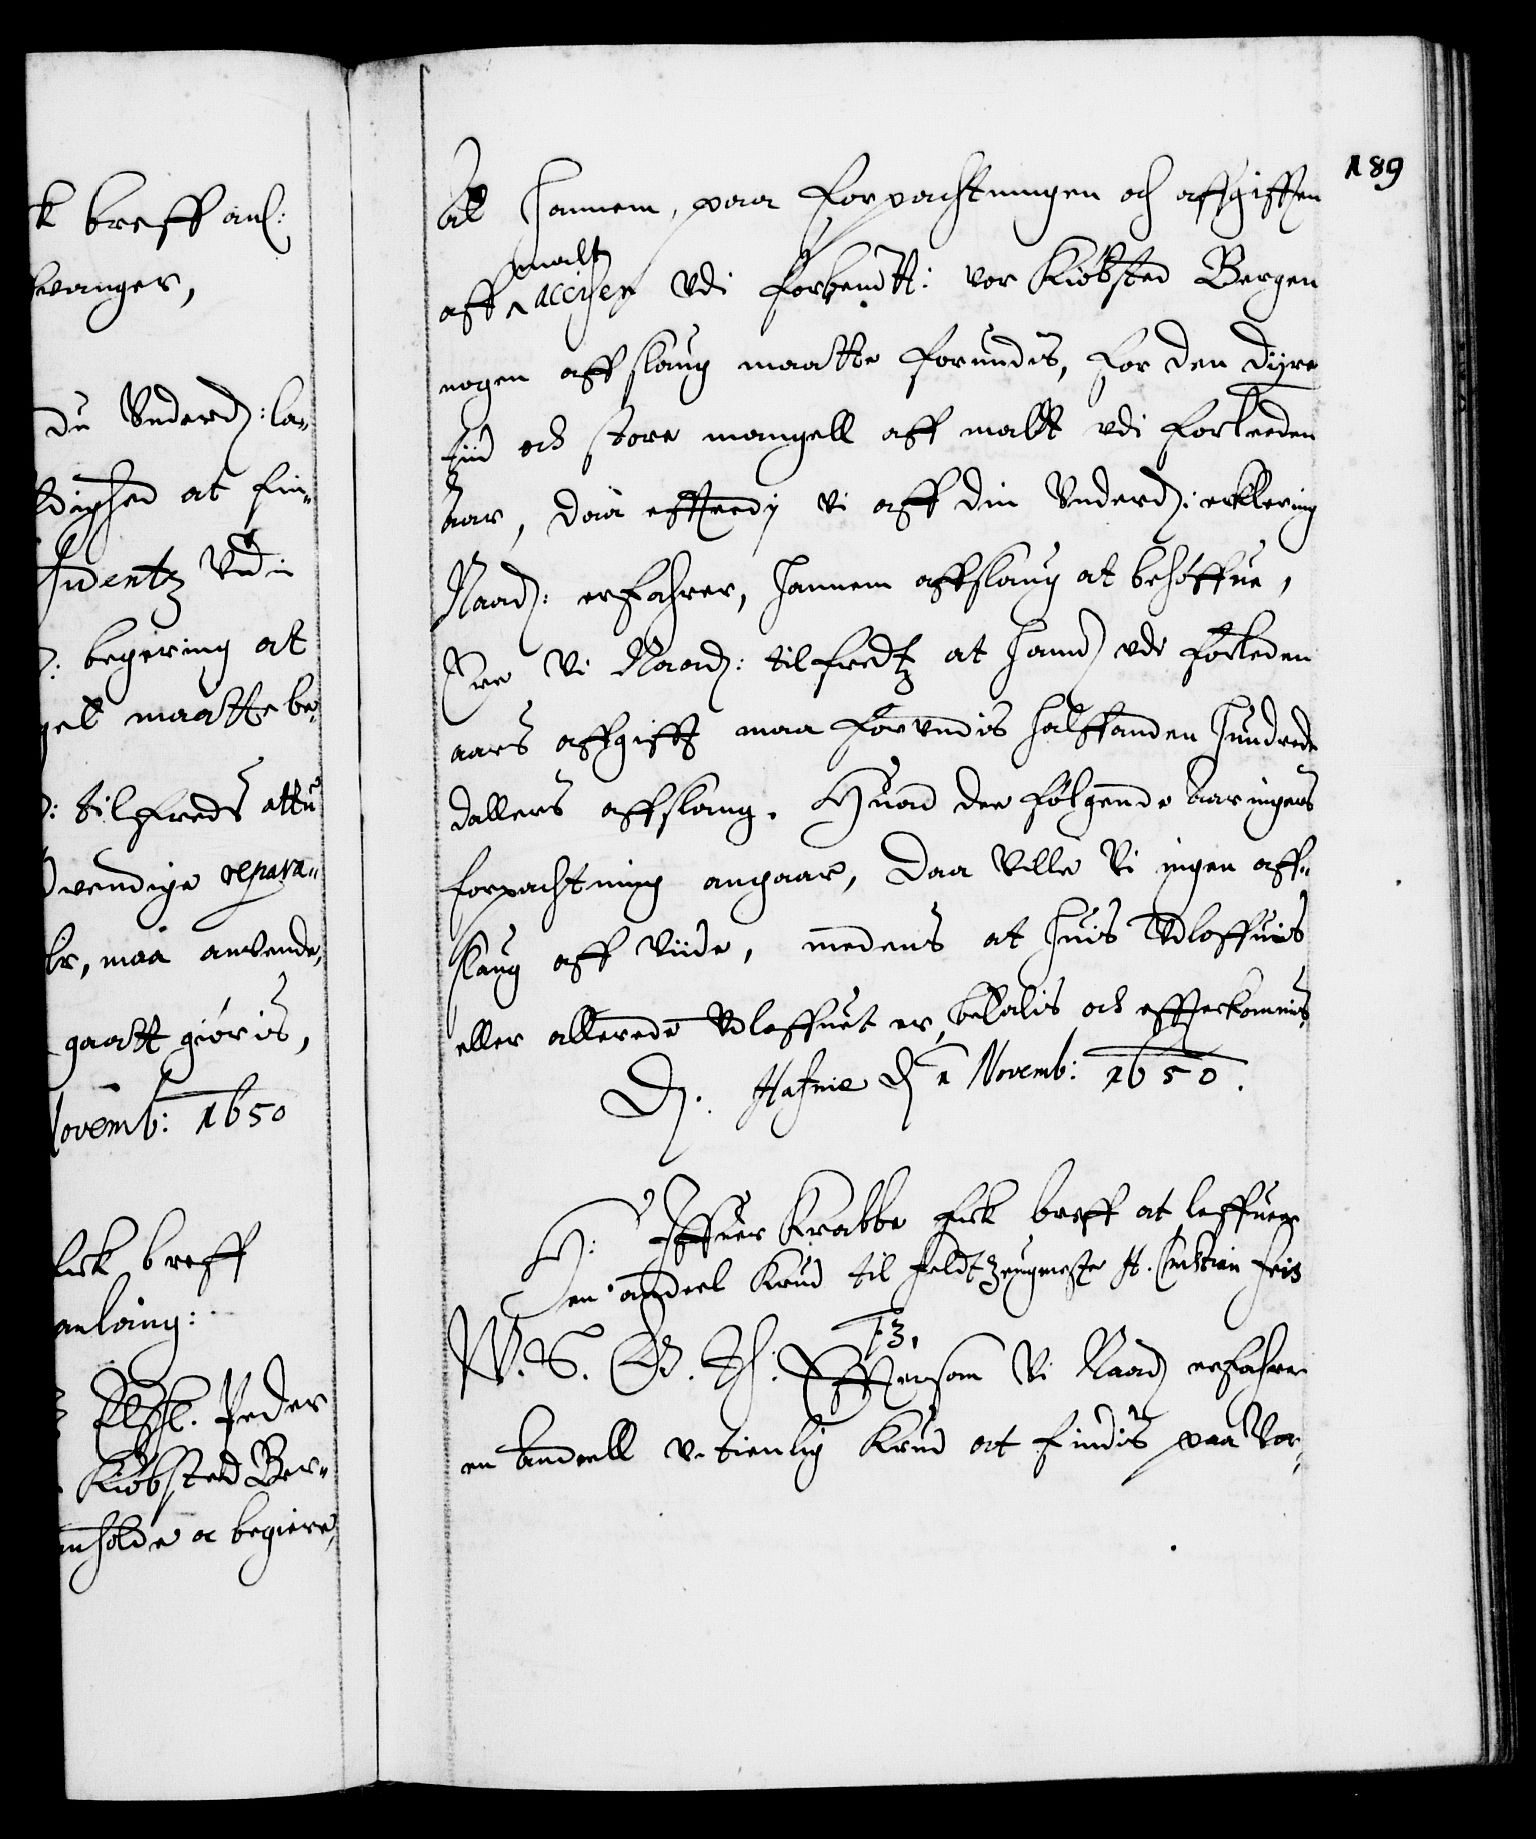 k breff anl:
vanger,
du Underd: la„
dighed at fin„
tudentz Udi
: begering at
gel maatte be„
: tilfreds att du
vendige repara„
lr, maa anvende,
gaatt giöris,
ovemb: 1650
fick breff
anlaing:
Elsk. Peder
Kiöbsted Ber„
nholde oc begiere,
189
at hannem, paa forpachtningen och affgifften
aff malt accisen udi forbemt: vor Kiöbsted Bergen
nogen affslaug maatte forundis, for den dyre
tiid och store mangell aff malt udi forleeden
aar, daa effterdj vi aff din Underd: erklering
Naad: erfahrer, hannem affslaug at behöffue,
Ere Vi Naad: tilfredtz at hand udi forleden
aars affgifft maa forundis halffanden hundrede
dallers affslaug. Huad dee fölgende aaringers
forpachtning angaar, daa ville Vi ingen aff„
slaug aff viide, medens at huis Udloffuis
eller allerede Udloffuet er, betalis och effterkommis,
D. Hafniæ d 1 Novemb: 1650.
H: Iffuer Krabbe fick breff at leffuere
en andeel Krud til feldtzeugmester H. Christian Friis
C 4. W. S. G. T: Effttersom Vi Naad erfahre
en andeell u-tienlig Krud at findis paa Vor„